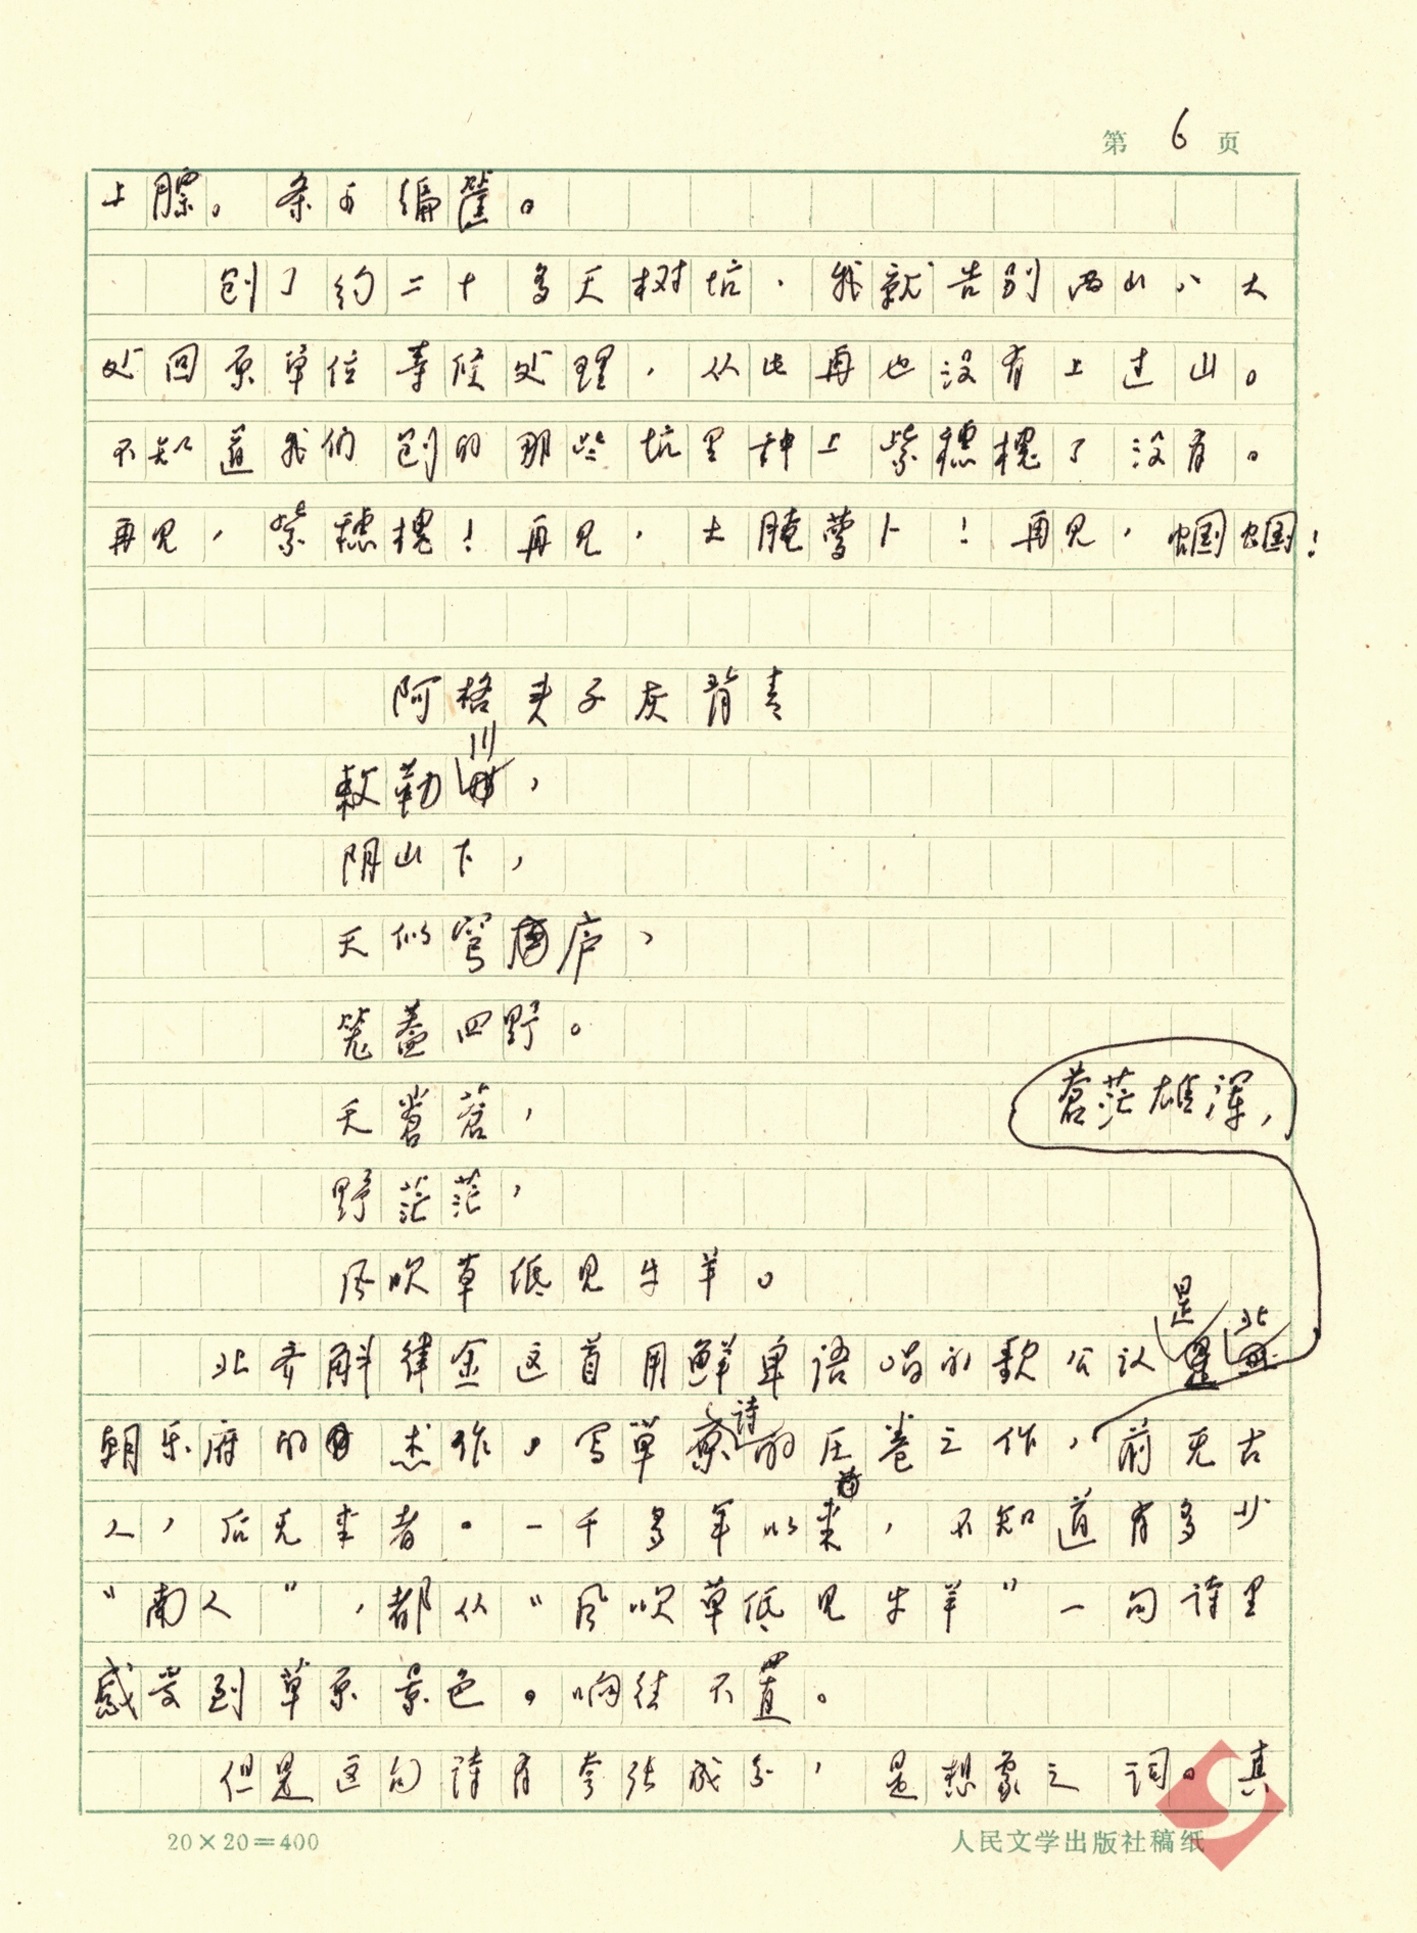 第6页
上膘。条可编筐。
刨了约二十多天树坑,我就告别西山八大
处回原单位等候处理,从此再也没有上过山。
不知道我们刨的那些坑里种上紫穗槐了没有。
再见,紫穗槐!再见,大腌萝卜!再见,蝈蝈!
阿格头子灰背青
敕勒川,
阴山下,
天似穹庐,
笼盖四野。
天苍苍,
野茫茫,
风吹草低见牛羊。
北齐斛律金这首用鲜卑语唱的歌公认是北
朝乐府的杰作,写草原诗的压卷之作,苍茫雄浑,前无古
人,后无来者。一千多年以来,不知道有多少
“南人”,都从“风吹草低见牛羊”一句诗里
感受到草原景色。响往不置。
但是这句诗有夸张成分,是想象之词。真
20×20=400
人民文学出版社稿纸